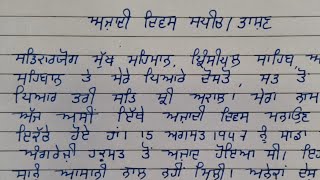 ਅਜ਼ਾਦੀ ਦਿਵਸ ਸਪੀਚ / ਭਾਸ਼ਣ
ਸਤਿਕਾਰਯੋਗ ਮੁੱਖ ਮਹਿਮਾਨ, ਪ੍ਰਿੰਸੀਪਲ ਸਾਹਿਬ, ਅ
ਸਹਿਬਾਨ ਤੇ ਮੇਰੇ ਪਿਆਰੇ ਦੋਸਤੋ, ਸਭ ਤੋਂ
ਪਿਆਰ ਭਰੀ ਸਤਿ ਸ੍ਰੀ ਅਕਾਲ। ਮੇਰਾ ਨਾਮ
ਅੱਜ ਅਸੀਂ ਇੱਥੇ ਅਜ਼ਾਦੀ ਦਿਵਸ ਮਨਾਉਣ
ਇਕੱਠੇ ਹੋਏ ਹਾਂ। 15 ਅਗਸਤ 1947 ਨੂੰ ਸਾਡਾ
ਅੰਗਰੇਜ਼ੀ ਹਕੂਮਤ ਤੋਂ ਅਜ਼ਾਦ ਹੋਇਆ ਸੀ। ਇਹ
ਸਾਨੂੰ ਆਸਾਨੀ ਨਾਲ ਨਹੀਂ ਮਿਲੀ। ਅਨੇਕਾਂ ਦੇਸ਼